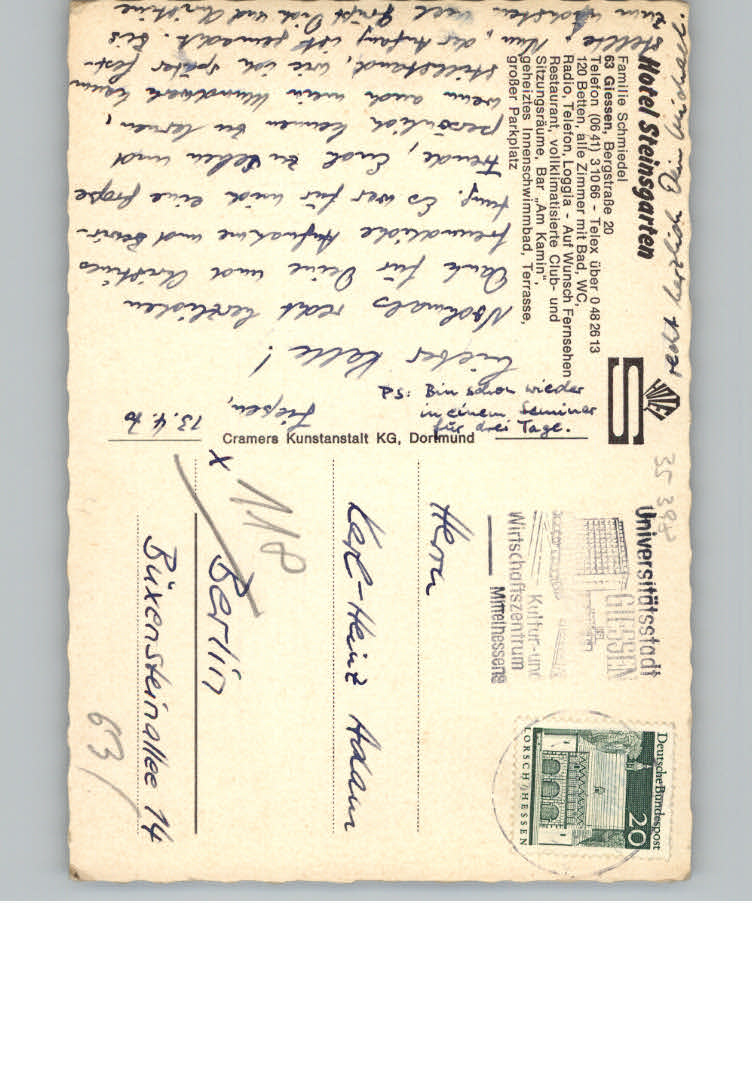 Hotel Steinsgarten
Familie Schmiedel
63 Giessen, Bergstraße 20
Telefon (06 41) 3 10 66 - Telex über 0 48 26 13
120 Betten, alle Zimmer mit Bad, WC,
Radio, Telefon, Loggia - Auf Wunsch Fernsehen
Restaurant, vollklimatisierte Club- und
Sitzungsräume, Bar „Am Kamin",
geheiztes Innenschwimmbad, Terrasse,
großer Parkplatz
Gießen,
13.4.70
Lieber Kalle!
Nochmals recht herzlichen
Dank für Deine und Christines
freundliche Aufnahme und Bewir-
tung. Es war für mich eine große
Freude, Euch zu sehen und
persönlich kennen zu lernen,
wenn auch mein Mundwerk kaum
stillstand, wie ich später fest-
stellte. Nun, der Anfang ist gemacht. Bis
zum nächsten Mal grüßt Dich und Christine
recht herzlich Dein
PS: Bin schon wieder
in einem Seminar
für drei Tage.
Cramers Kunstanstalt KG, Dortmund
35 394
Universitätsstadt
GIESSEN
Kultur- und
Wirtschaftszentrum
Mittelhessens
Deutsche Bundespost
20
LORSCH/HESSEN
Herrn
Karl-Heinz Adam
118
x Berlin
Büxensteinallee 14
63/